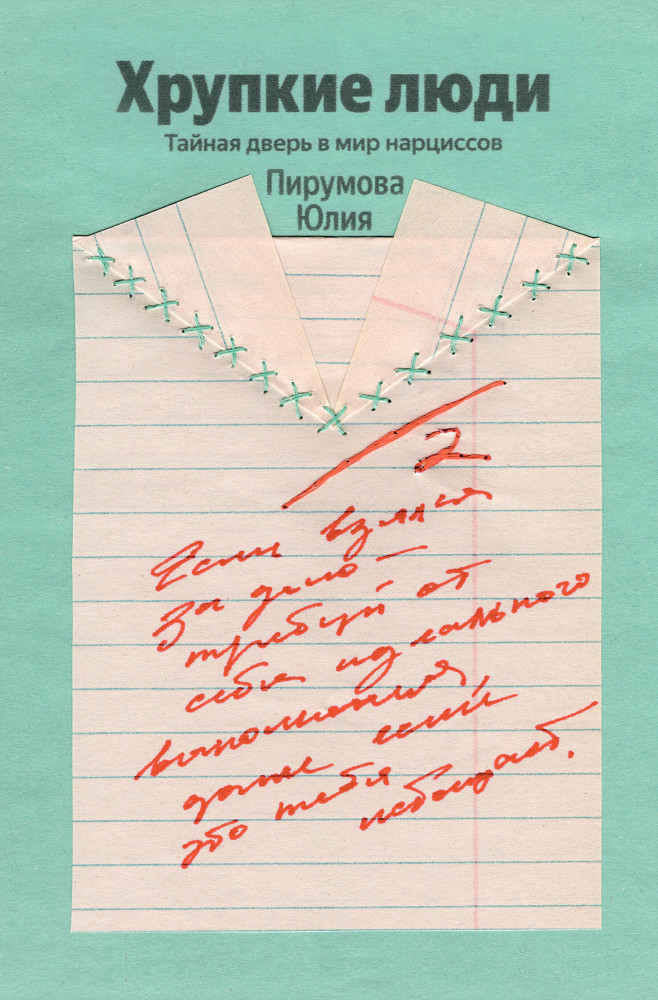 Хрупкие люди
Тайная дверь в мир нарциссов
Пирумова
Юлия
2
Если взялся
за дело —
требуй от
себя идеального
выполнения,
даже если
это тебя